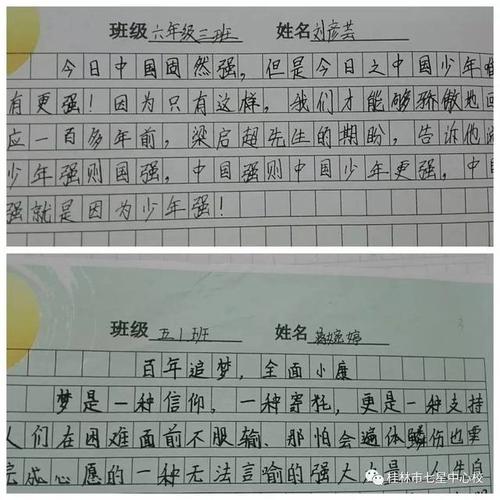 班级 六年级三班 姓名 刘彦芸
今日中国固然强，但是今日之中国少年
有更强！因为只有这样，我们才能够骄傲地回
应一百多年前，梁启超先生的期盼，告诉他
少年强则国强，中国强则中国少年更强，中
强就是因为少年强！
班级 五1班 姓名 婉婷
百年追梦，全面小康
梦是一种信仰，一种寄托，更是一种支持
人们在困难面前不服输、那怕会遍体鳞伤也要
完成心愿的一种无法言喻的强大力是
桂林市七星中心校